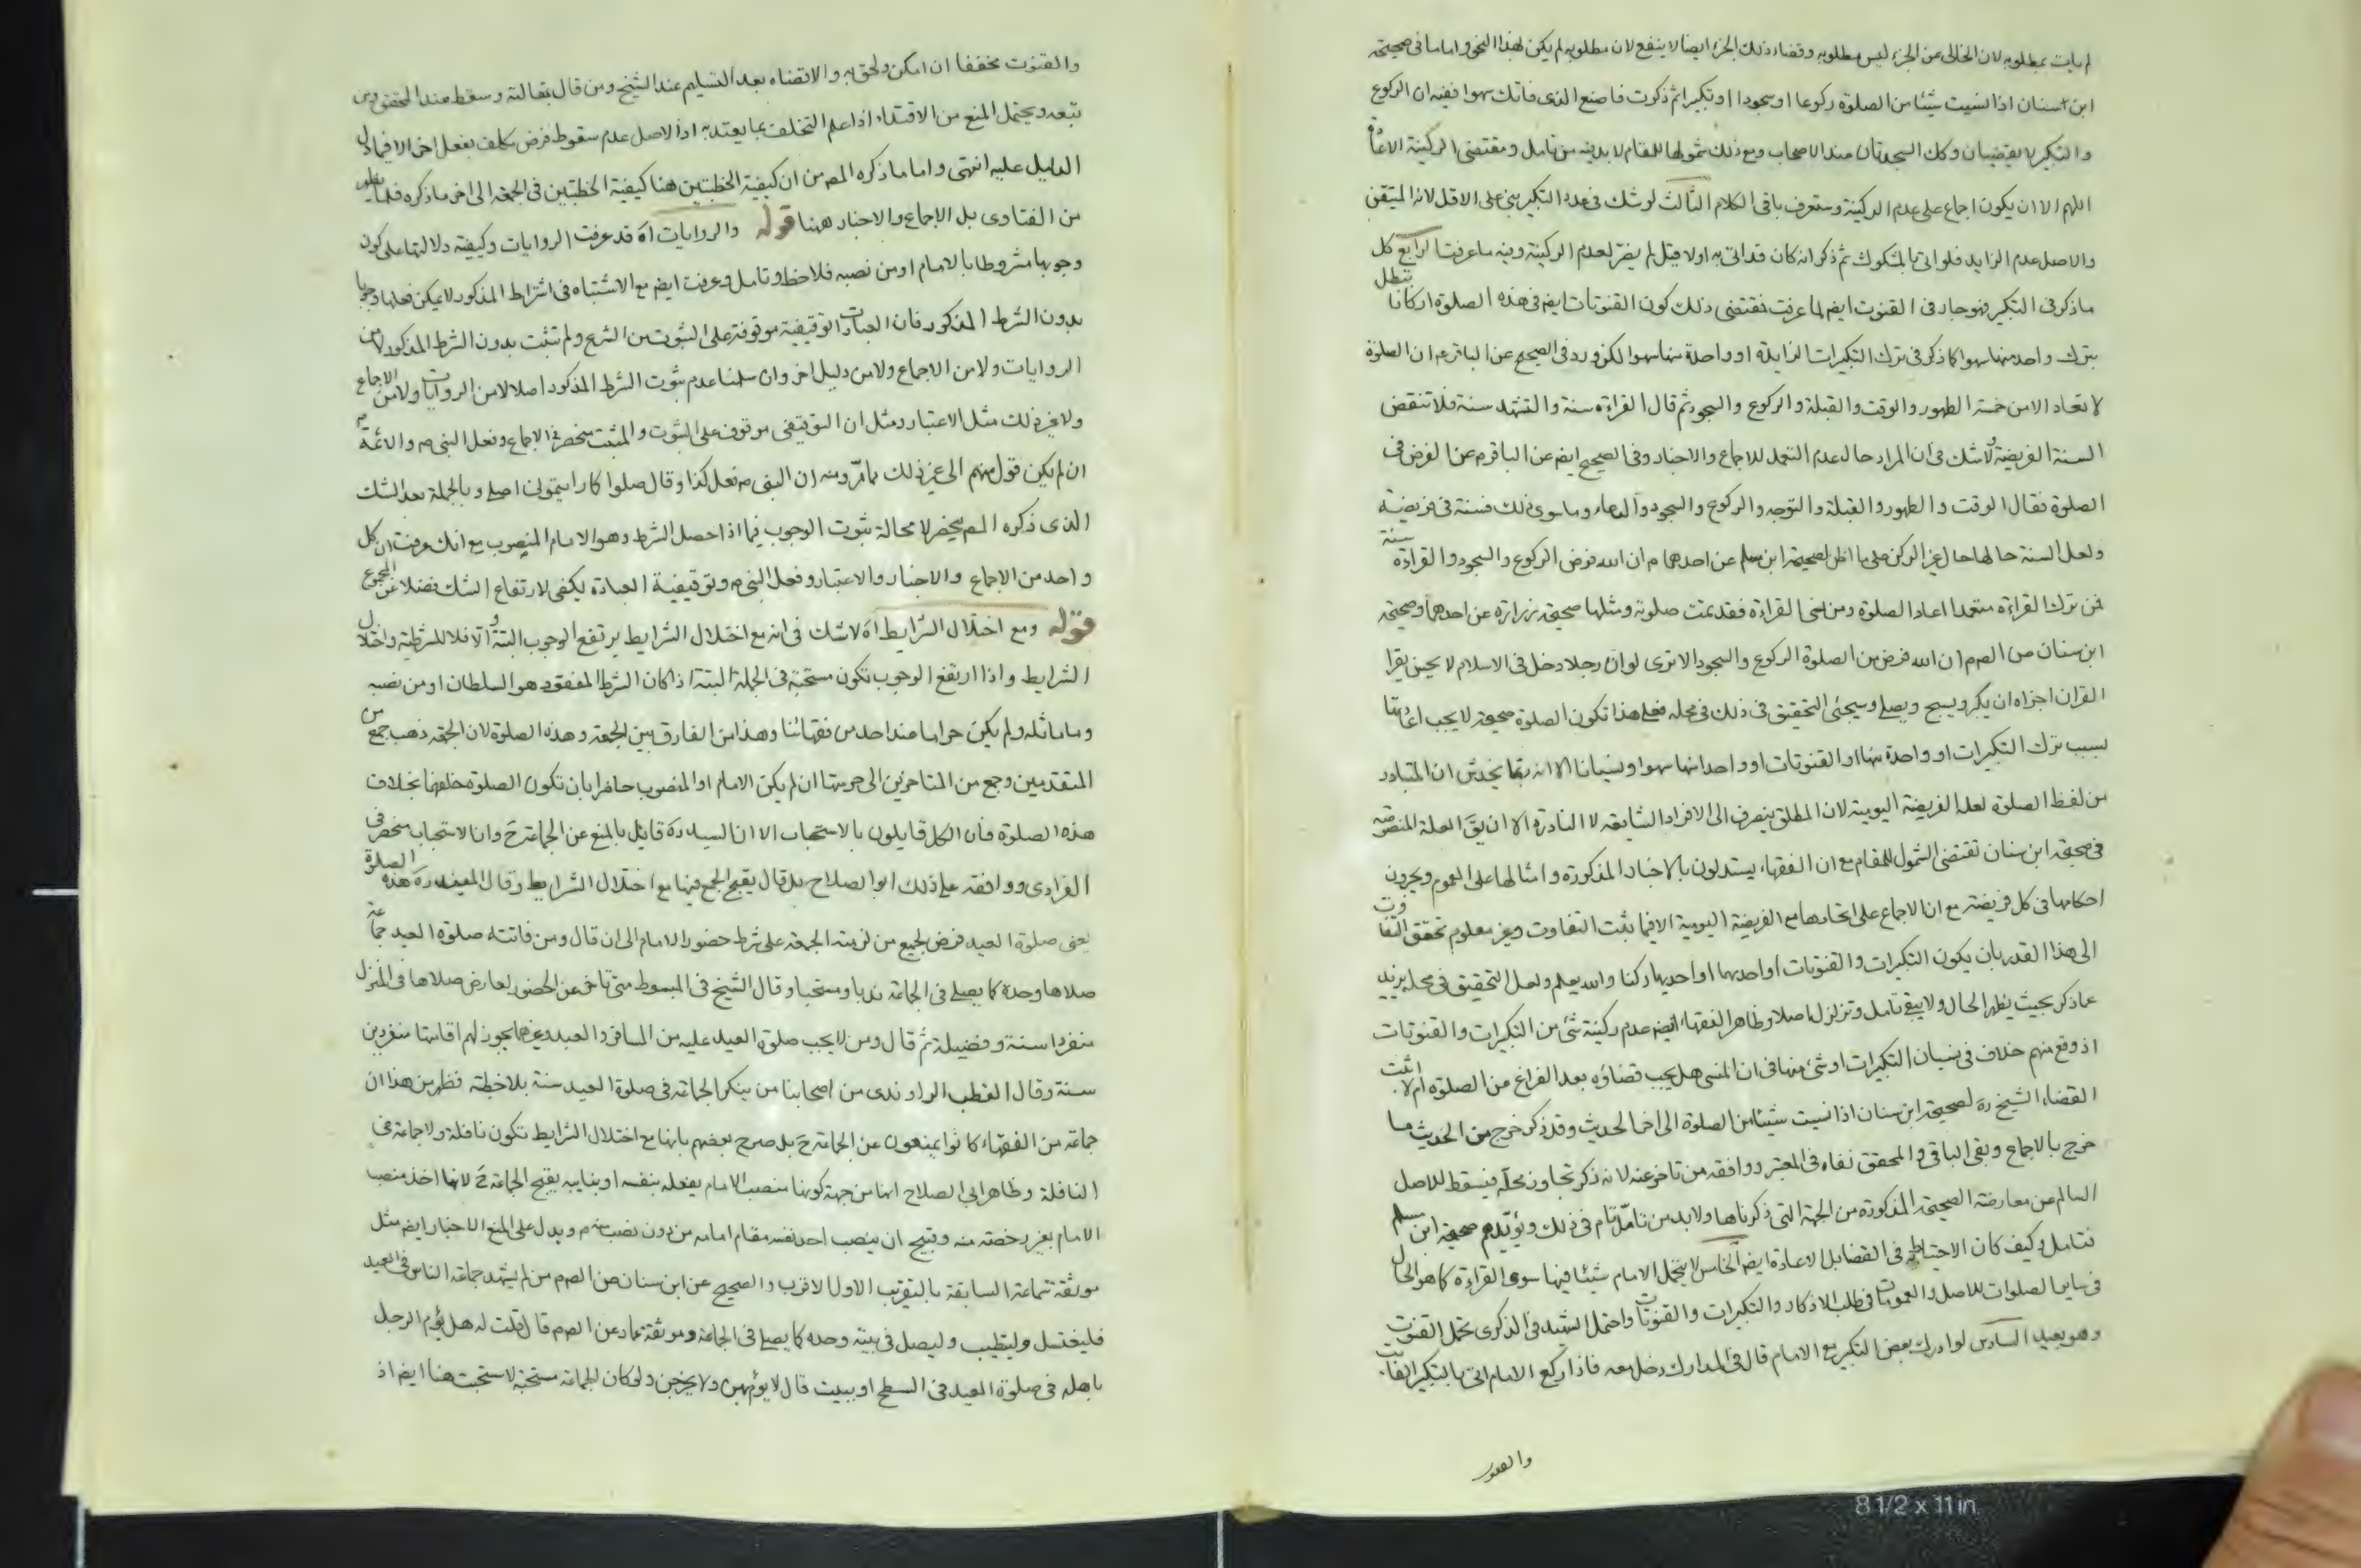 لم يات بمطلوبه لان الخالى عن الجزء ليس مطلوبه وقضاء ذلك الجزء ايضا لا ينفع لان مطلوبه لم يكن بهذا النحو واما ما فى صحيحة
ابن سنان اذا نسيت شيئا من الصلوة ركوعا او سجودا او تكبيرا ثم ذكرت فاصنع الذى فاتك سهوا ففيه ان الركوع
والتكبير لا يقضيان وكك السجدتان عند الاصحاب ومع ذلك شمولها للمقام لا بد فيه من تامل ومقتضى الركنية الاعادة
اللهم الا ان يكون اجماع على عدم الركنية وستعرف باقى الكلام الثالث لو شك فى عدد التكبير بنى على الاقل لانه المتيقن
والاصل عدم الزايد فلو اتى بالمشكوك ثم ذكر انه كان قد اتى به اولا قيل لم يضر لعدم الركنية وفيه ما عرفت الرابع كل
ما ذكر فى التكبير فهو جار فى القنوت ايضا لما عرفت فمقتضى ذلك كون القنوتات ايضا فى هذه الصلوة اركانا تبطل
بترك واحد منها سهوا كما ذكر فى ترك التكبيرات الزايدة او واحدة منها سهوا لكن ورد فى الصحيح عن الباقر م ان الصلوة
لا تعاد الا من خمسة الطهور والوقت والقبلة والركوع والسجود ثم قال القراءة سنة والتشهد سنة فلا تنقض
السنة الفريضة ولا شك فى ان المراد حال عدم التعمد للاجماع والاخبار وفى الصحيح ايضا عن الباقر م عن الفرض فى
الصلوة فقال الوقت والطهور والقبلة والتوجه والركوع والسجود والدعاء وما سوى ذلك فسنة فى فريضة
ولعل السنة حالها حال غير الركن على ما اظن لصحيحة ابن مسلم عن احدهما م ان الله فرض الركوع والسجود والقراءة سنة
فمن ترك القراءة متعمدا اعاد الصلوة ومن نسى القراءة فقد تمت صلوته ومثلها صحيحة زرارة عن احدهما وصحيحة
ابن سنان عن الصم ان الله فرض من الصلوة الركوع والسجود الا ترى لو ان رجلا دخل فى الاسلام لا يحسن يقرا
القران اجزاه ان يكبر ويسبح ويصلى وسيجئ التحقيق فى ذلك فى محله فعلى هذا تكون الصلوة صحيحة لا يجب اعادتها
بسبب ترك التكبيرات او واحدة منها او القنوتات او واحد منها سهوا ونسيانا الا انه ربما يخدش ان المتبادر
من لفظ الصلوة لعله الفريضة اليومية لان المطلق ينصرف الى الافراد الشايعة لا النادرة الا ان يق العلة المنصوصة
فى صحيحة ابن سنان تقتضى الشمول للمقام مع ان الفقهاء يستدلون بالاخبار المذكورة وامثالها على العموم ويجرون
احكامها فى كل فريضة مع ان الاجماع على اتحادها مع الفريضة اليومية الا فيما يثبت التفاوت وغير معلوم تحقق التفاوت
الى هذا القدر بان يكون التكبيرات والقنوتات او احدهما او احديها ركنا والله يعلم ولعل التحقيق فى محله يزيد
عما ذكر بحيث يظهر الحال ولا يبقى تامل وتزلزل اصلا وظاهر الفقهاء ايضا عدم ركنية شئ من التكبيرات والقنوتات
اذ وقع منهم خلاف فى نسيان التكبيرات او شئ منها فى ان المنسى هل يجب قضاؤه بعد الفراغ من الصلوة ام لا اثبت
القضاء الشيخ ره لصحيحة ابن سنان اذا نسيت شيئا من الصلوة الى اخر الحديث وقد ذكر خرج من الحديث ما
خرج بالاجماع وبقى الباقى والمحقق نفاه فى المعتبر ووافقه من تاخر عنه لانه ذكر تجاوز محله فيسقط للاصل
السالم عن معارضة الصحيحة المذكورة من الجهة التى ذكرناها ولا بد من تامل تام فى ذلك ويؤيدهم صحيحة ابن مسلم
فتامل وكيف كان الاحتياط فى القضا بل الاعادة ايضا الخامس لا يتحمل الامام شيئا فيها سوى القراءة كما هو الحال
فى ساير الصلوات للاصل والعمومات فى طلب الاذكار والتكبيرات والقنوتات واحتمل الشهيد فى الذكرى تحمل القنوت
وهو بعيد السادس لو ادرك بعض التكبير مع الامام قال فى المدارك دخل معه فاذا ركع الامام اتى بالتكبير الفايت
والقنوت
والقنوت مخففا ان امكن ولحق به والا قضاه بعد التسليم عند الشيخ ومن قال بمقالته وسقط عند المحقق ومن
تبعه ويحتمل المنع من الاقتداء اذا علم التخلف بما يعتد به اذ الاصل عدم سقوط فرض مكلف بفعل اخر الا فيما دل
الدليل عليه انتهى واما ما ذكره المصر من ان كيفية الخطبتين هنا كيفية الخطبتين فى الجمعة الى اخر ما ذكره فلما يظهر
من الفتاوى بل الاجماع والاخبار ههنا قوله والروايات اه قد عرفت الروايات وكيفية دلالتها على كون
وجوبها مشروطا بالامام او من نصبه فلاحظ وتامل وعرفت ايضا مع الاشتباه فى اشتراط المذكور لا يمكن فعلها وجوبا
بدون الشرط المذكور فان العبادات التوقيفية موقوفة على الثبوت من الشرع ولم تثبت بدون الشرط المذكور لا من
الروايات ولا من الاجماع ولا من دليل اخر وان سلمنا عدم ثبوت الشرط المذكور اصلا لا من الروايات ولا من الاجماع
ولا غير ذلك مثل الاعتبار ومثل ان التوقيفى موقوف على الثبوت والمثبت منحصر فى الاجماع وفعل النبى ص والائمة م
ان لم يكن قول منهم الى غير ذلك مما مر ومنه ان النبى ص فعل كذا وقال صلوا كما رايتمونى اصلى وبالجملة بعد الشك
الذى ذكره المصر ينحصر لا محالة ثبوت الوجوب فيما اذا حصل الشرط وهو الامام المنصوب مع انك عرفت ان كل
واحد من الاجماع والاخبار والاعتبار وفعل النبى ص وتوقيفية العبادة يكفى لارتفاع الشك فضلا عن المجموع
قوله ومع اختلال الشرايط اه لا شك فى انه مع اختلال الشرايط يرتفع الوجوب البتة والا فلا للشرطية واختلال
الشرايط واذا ارتفع الوجوب تكون مستحبة فى الجملة البتة اذا كان الشرط المفقود هو السلطان او من نصبه
وما ماثله ولم يكن حراما عند احد من فقهائنا وهذا من الفارق بين الجمعة وهذه الصلوة لان الجمعة ذهب جمع من
المتقدمين وجمع من المتاخرين الى حرمتها ان لم يكن الامام او المنصوب حاضرا بان تكون الصلوة خلفهما بخلاف
هذه الصلوة فان الكل قايلون بالاستحباب الا ان السيد ره قايل بالمنع عن الجماعة ح وان الاستحباب منحصر فى
الفرادى ووافقه على ذلك ابو الصلاح بل قال يقبح الجمع فيها مع اختلال الشرايط وقال المفيد ره هذه الصلوة
يعنى صلوة العيد فرض لجميع من لزمته الجمعة على شرط حضور الامام الى ان قال ومن فاتته صلوة العيد جماعة
صلاها وحده كما يصلى فى الجماعة ندبا ومستحبا وقال الشيخ فى المبسوط متى تاخر عن الحضور لعارض صلاها فى المنزل
منفردا سنة وفضيلة ثم قال ومن لا يجب صلوة العيد عليه من المسافر والعبد وغيرهما يجوز لهم اقامتها منفردين
سنة وقال القطب الراوندى من اصحابنا من ينكر الجماعة فى صلوة العيد سنة بلا خطبة فظهر من هذا ان
جماعة من الفقهاء كانوا يمنعون عن الجماعة ح بل صرح بعضهم بانها مع اختلال الشرايط تكون نافلة ولا جماعة فى
النافلة وظاهر ابى الصلاح انها من جهة كونها منصب الامام يفعله بنفسه او بنايبه يقبح الجماعة ح لانها اخذ منصب
الامام بغير رخصة منه وقبيح ان ينصب احد نفسه مقام امامه من دون نصب منه م ويدل على المنع الاخبار ايضا مثل
موثقة سماعة السابقة بالتقريب الاول الاقرب والصحيح عن ابن سنان عن الصم من لم يشهد جماعة الناس فى العيد
فليغتسل وليتطيب وليصل فى بيته وحده كما يصلى فى الجماعة وموثقة عمار عن الصم قال قلت له هل يؤم الرجل
باهله فى صلوة العيد فى السطح او بيت قال لا يؤم بهن ولا يخرجن ولو كان الجماعة مستحبة لاستحبت هنا ايضا اذ